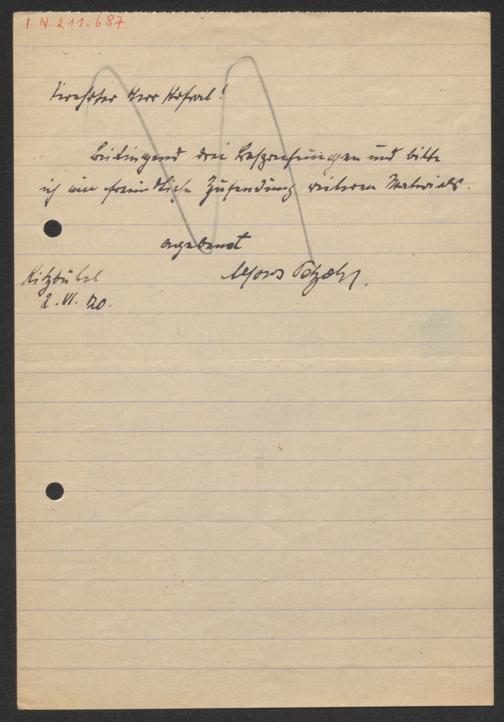 I.N. 211.687
Verehrter Herr Hofrat!
Beiliegend drei Besprechungen und bitte
ich um freundliche Zusendung weiteren Materials.
ergebenst
Kitzbühel
2. VI. 20.